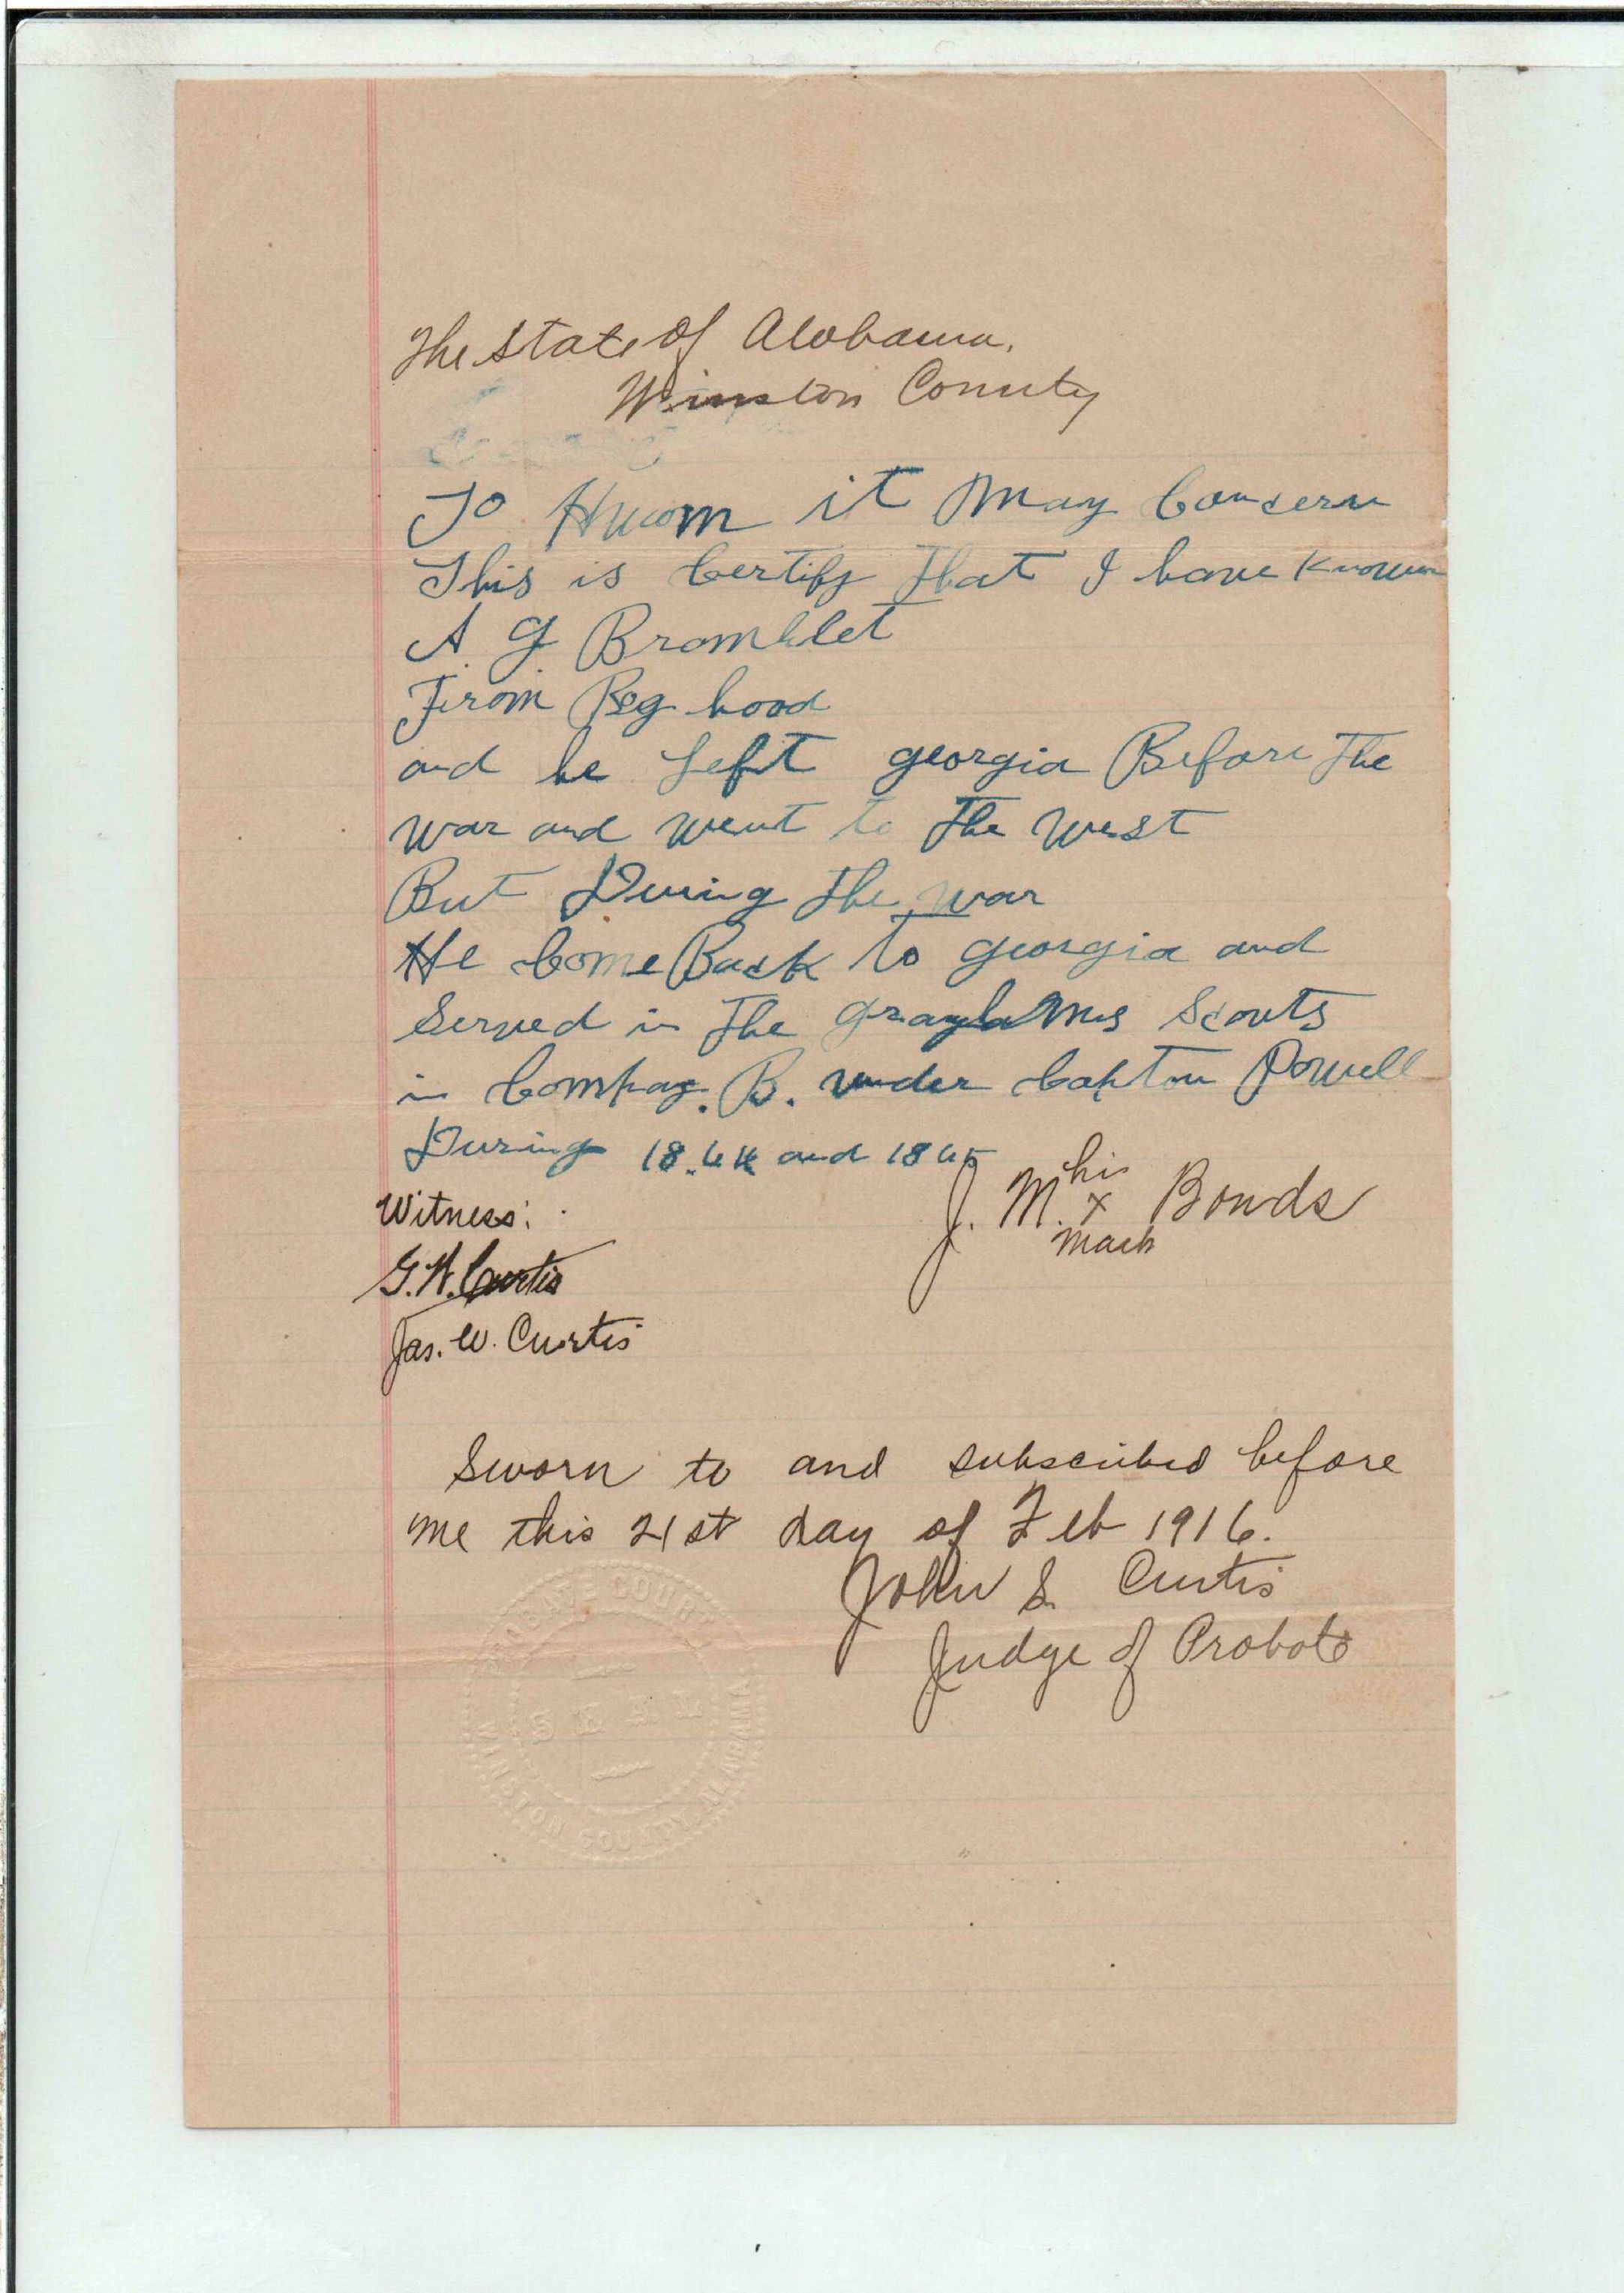 The State of Alabama.
Winston County
To Huom it May Concern
This is Certify that I have Known
A. G. Bramblet
From Boy hood
and he Left georgia Before The
war and went to The west
But During The war
He Come Back to georgia and
Served in The Scouts
in Compay. B. under Capton Powell
During 18.64 and 1865
Witness:
J. M. his x mark Bonds
G. W. Curtis
Jas. W. Curtis
Sworn to and subscribed before
me this 21st day of Feb 1916.
John S. Curtis
Judge of Probate
PROBATE COURT
SEAL
WINSTON COUNTY, ALABAMA